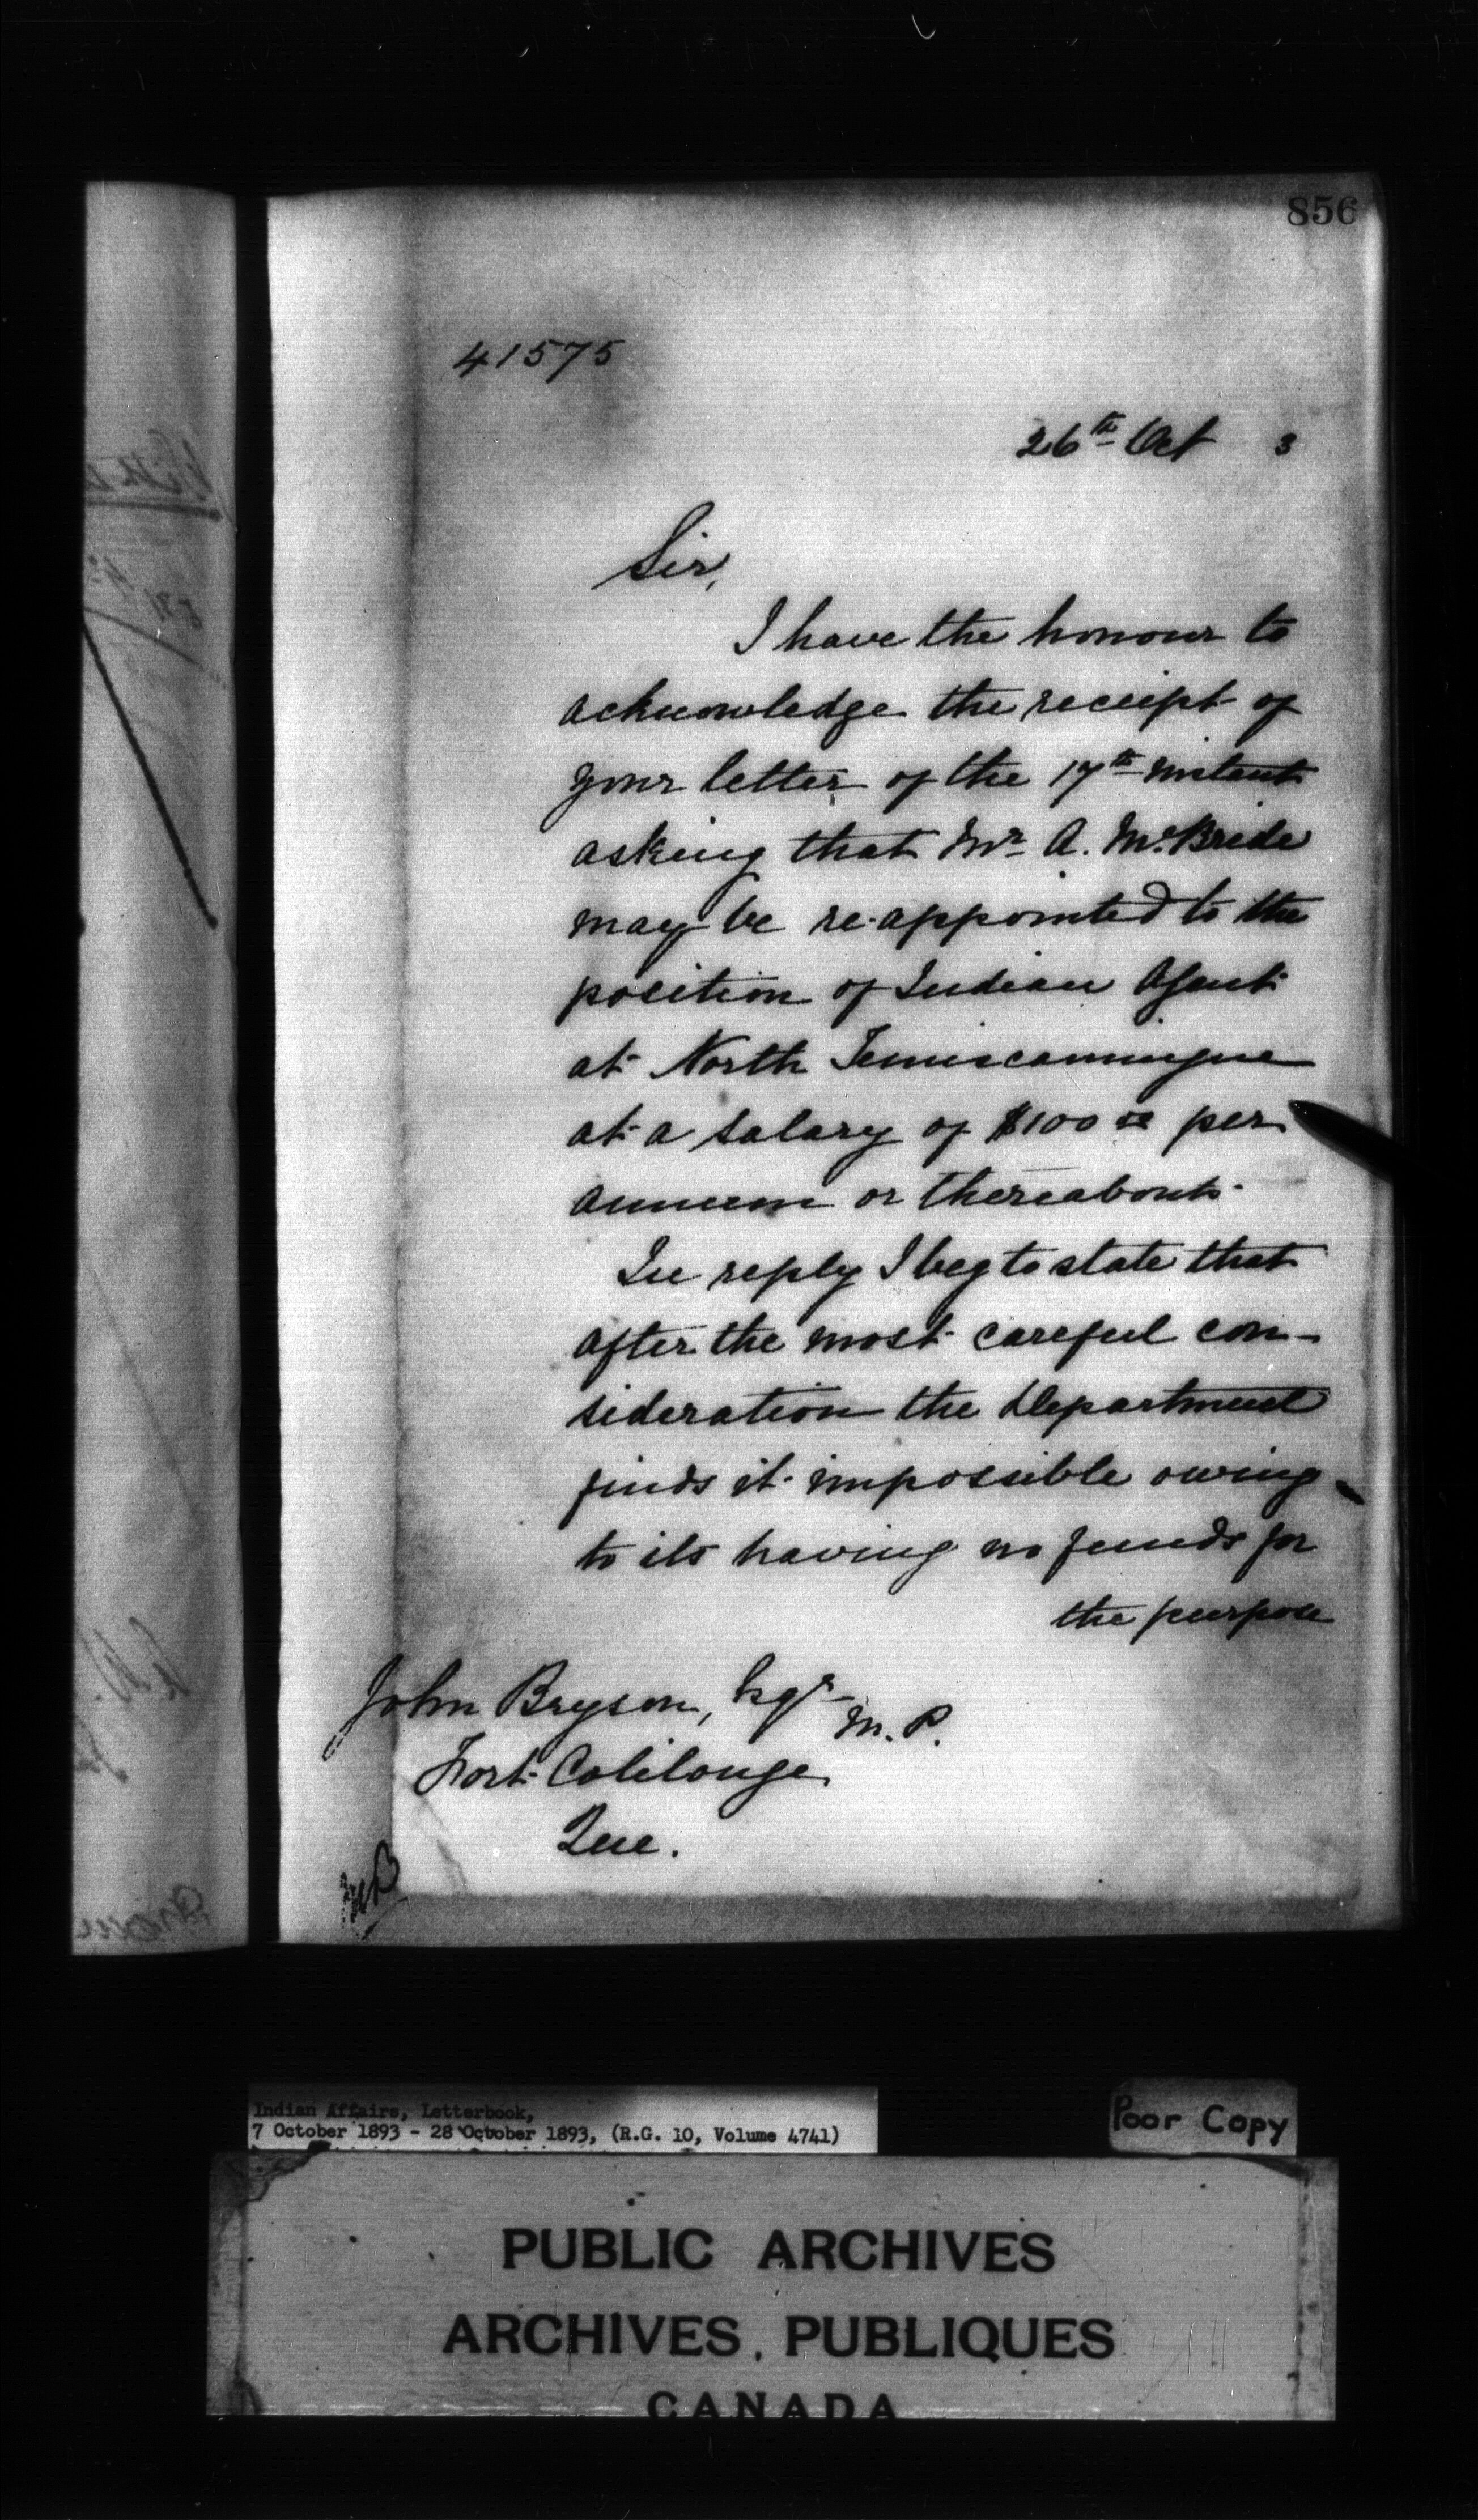 856
41575
26th Oct 3
Sir,
I have the honour to
acknowledge the receipt of
your letter of the 17th instant
asking that Mr A. McBride
may be re-appointed to the
position of Indian Agent
at North Temiscamingue
at a salary of $100 00 per
annum or thereabouts.
In reply I beg to state that
after the most careful con-
sideration the Department
finds it impossible owing
to its having no funds for
the purpose
John Bryson, Esqr
M. P.
Fort Colilonge
Que.
Indian Affairs, Letterbook,
7 October 1893 - 28 October 1893, (R.G. 10, Volume 4741)
Poor Copy
PUBLIC ARCHIVES
ARCHIVES PUBLIQUES
CANADA